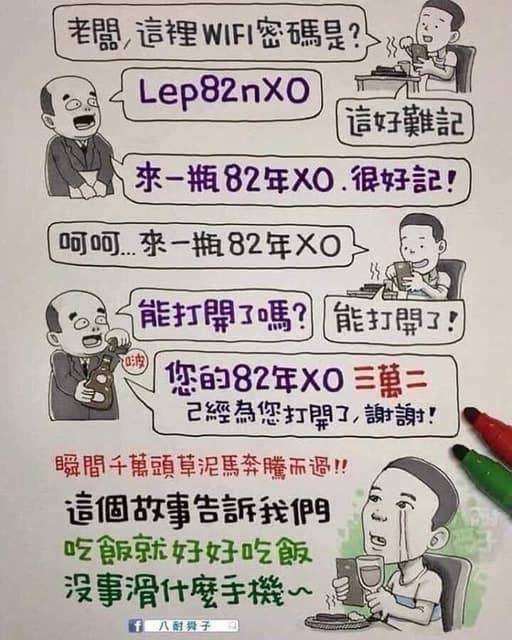 老闆,這裡WIFI密碼是?
Lep82nXO
這好難記
來一瓶82年XO.很好記!
呵呵...來一瓶82年XO
能打開了嗎?
能打開了!
啵
您的82年XO 三萬二
己經為您打開了,謝謝!
瞬間千萬頭草泥馬奔騰而過!!
這個故事告訴我們
吃飯就好好吃飯
沒事滑什麼手機~
f 八耐舜子